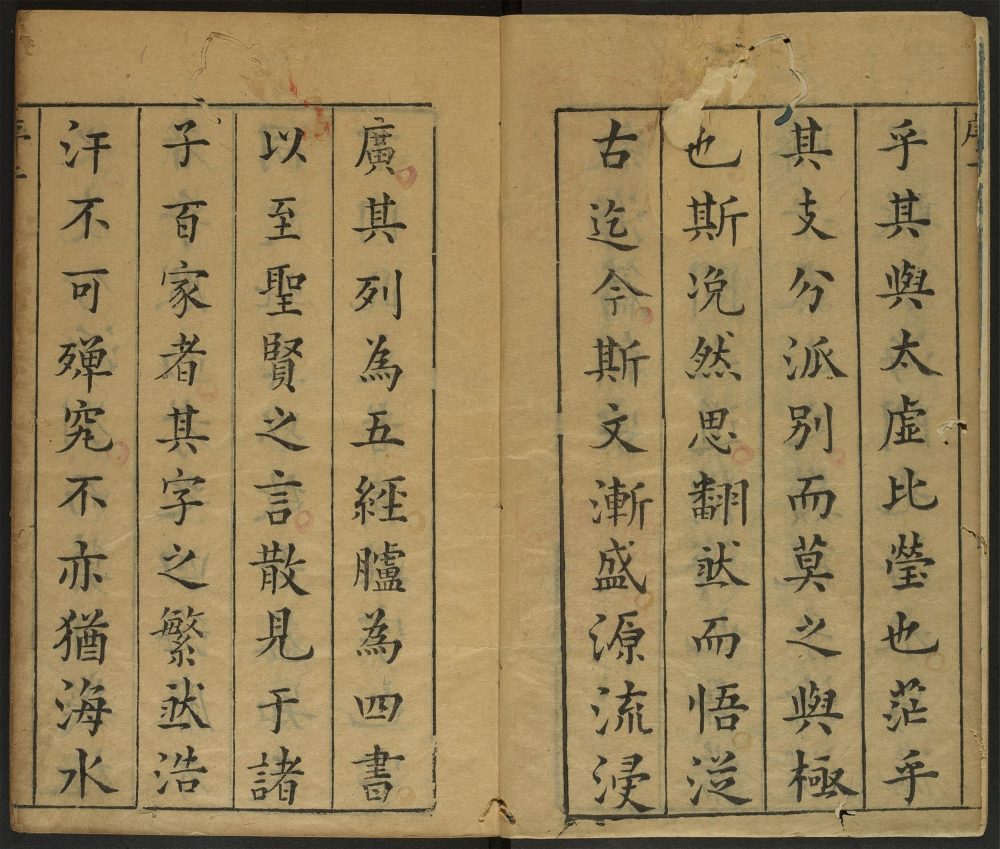 乎其與太虛比瑩也茫乎
其支分派別而莫之與極
也斯怳然思翻然而悟從
古迄今斯文漸盛源流浸
廣其列為五經臚為四書
以至聖賢之言散見于諸
子百家者其字之繁然浩
汗不可殫究不亦猶海水